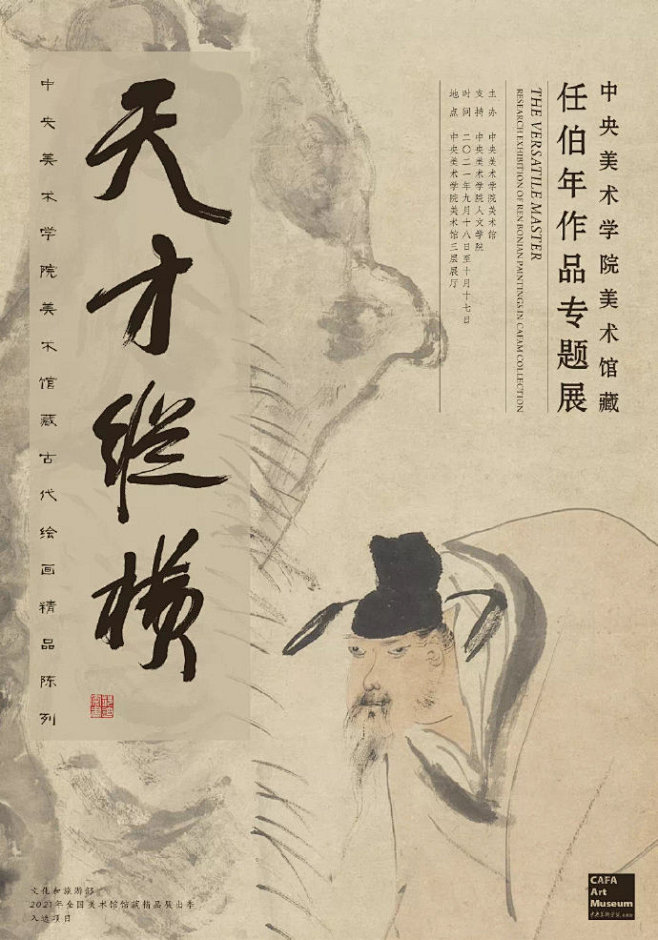 中央美术学院美术馆藏
任伯年作品专题展
THE VERSATILE MASTER
RESEARCH EXHIBITION OF REN BONIAN PAINTINGS IN CAFAM COLLECTION
主办 中央美术学院美术馆
支持 中央美术学院人文学院
时间 二〇二一年九月十八日至十月十七日
地点 中央美术学院美术馆三层展厅
天才纵横
中央美术学院美术馆藏古代绘画精品陈列
文化和旅游部
2021年全国美术馆馆藏精品展出季
入选项目
CAFA
Art
Museum
中央美术学院